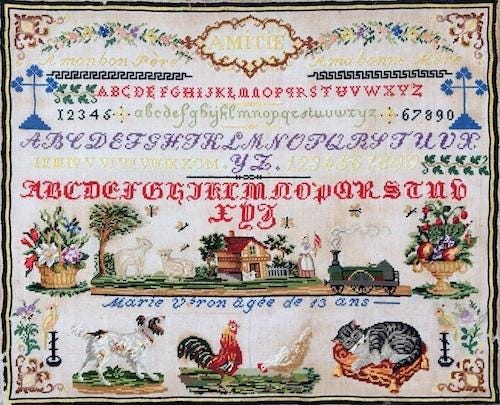 AMITIE
A mon bon Père A ma bonne Mère
ABCDEFGHIJKLMNOPQRSTUVWXYZ
12345 abcdefghijklmnopqrstuvwxyz 67890
ABCDEFGHIJKLMNOPQRSTUVX
YZ. 1234567890
ABCDEFGHIJKLMNOPQRSTUV
XYZ
Marie Véron âgée de 13 ans